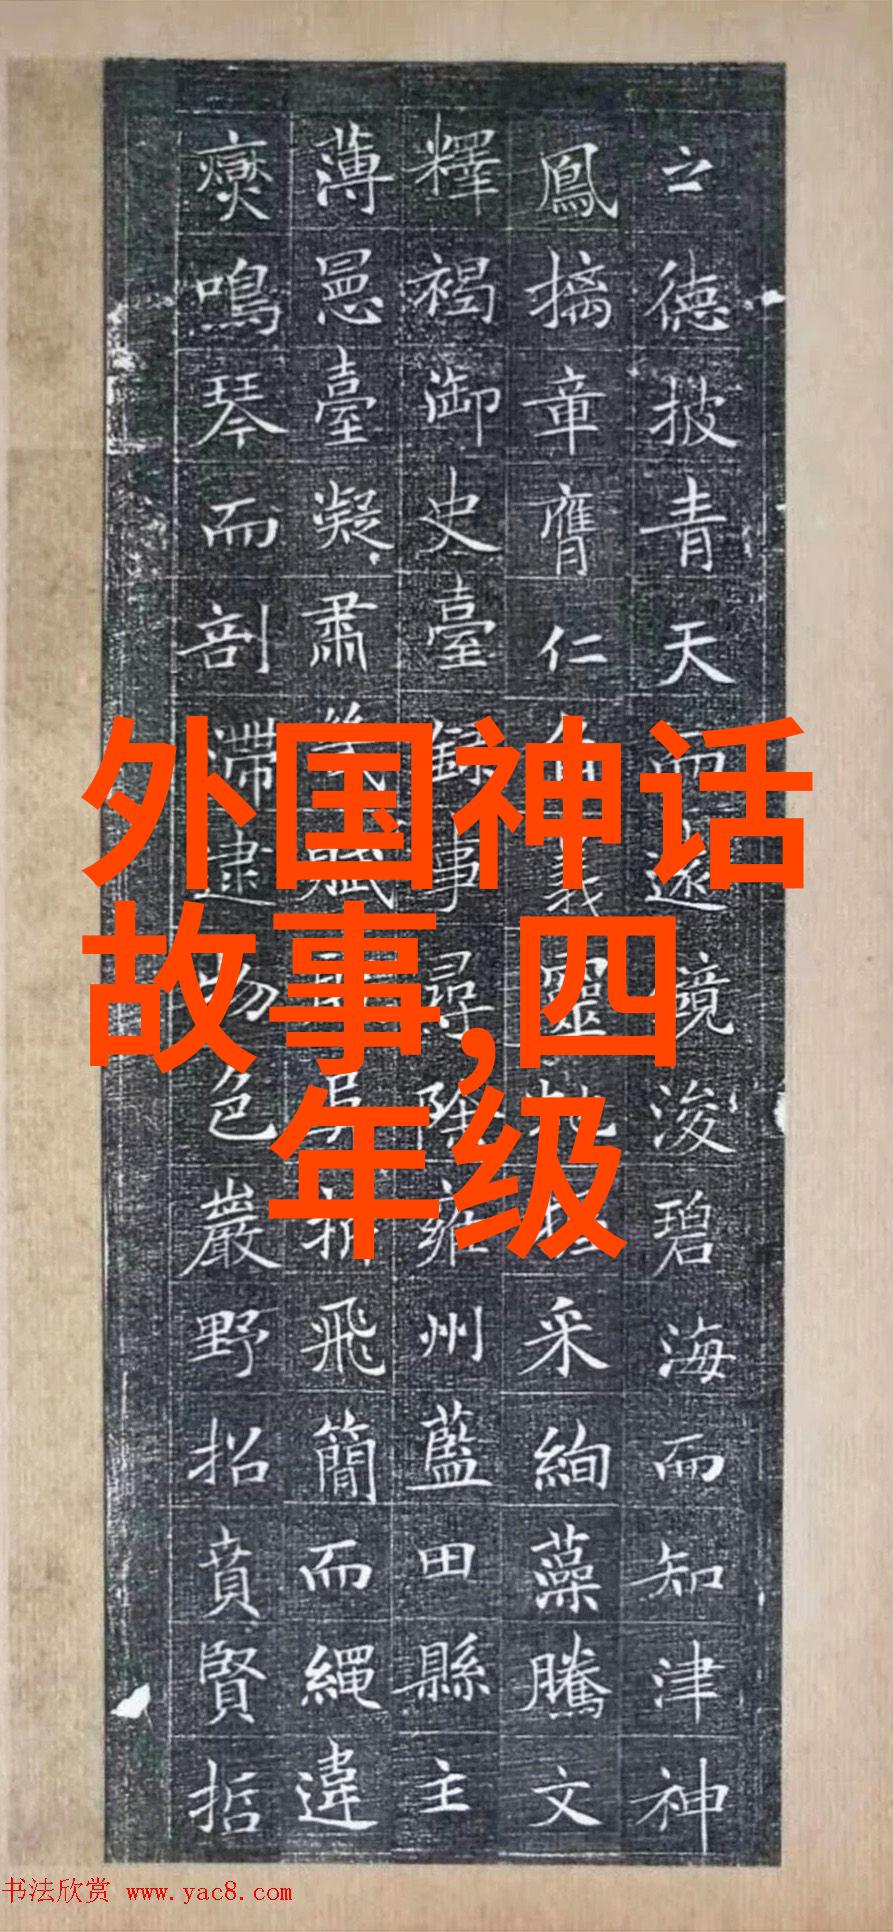 之德披青天而鏡浚碧海而知津神
鳳摛章膺仁義靈采絢藻騰文
釋褐御史臺録事尋除雍州藍田縣主
薄臺凝肅飛簡而繩違
鳴琴而剖滯逮物色巖野招賁賢哲
外国神话
故事,四
年级
书法欣赏 www.yac8.com